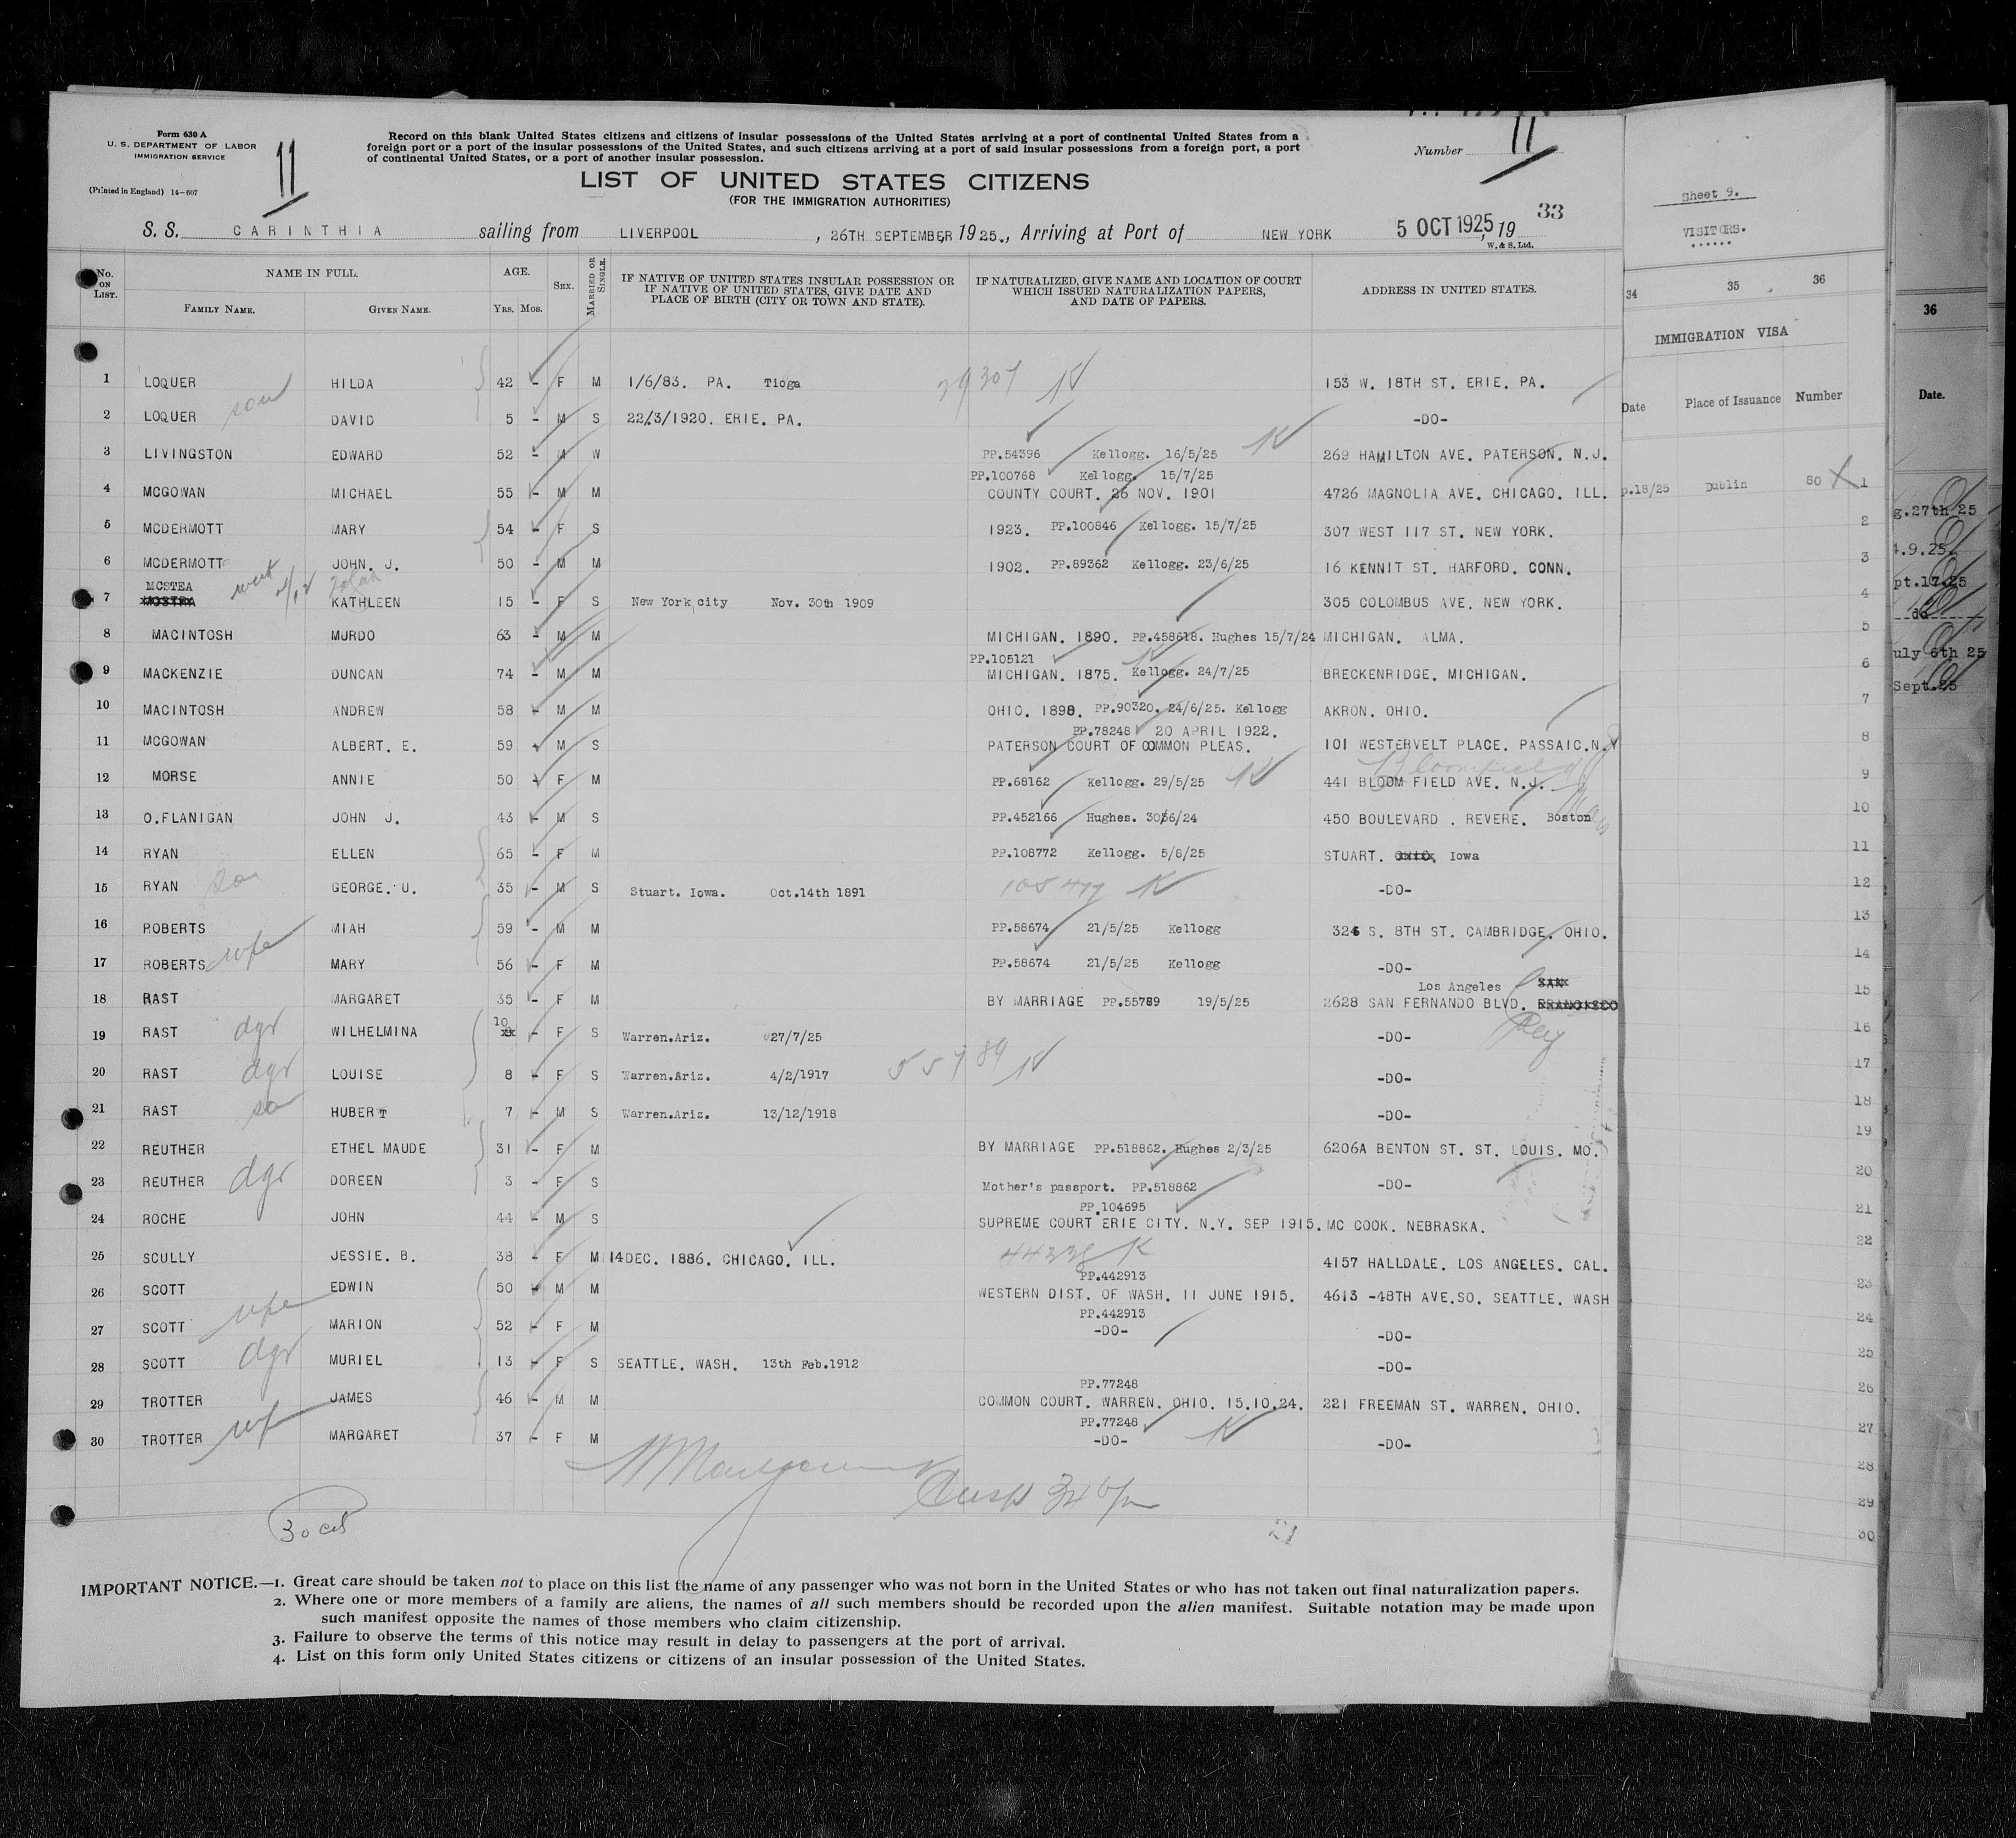 Form 630 A
U. S. DEPARTMENT OF LABOR
IMMIGRATION SERVICE
(Printed in England) 14-607
11
Record on this blank United States citizens and citizens of insular possessions of the United States arriving at a port of continental United States from a
foreign port or a port of the insular possessions of the United States, and such citizens arriving at a port of said insular possessions from a foreign port, a port
of continental United States, or a port of another insular possession.
Number 11
LIST OF UNITED STATES CITIZENS
(FOR THE IMMIGRATION AUTHORITIES)
33
S. S. CARINTHIA sailing from LIVERPOOL , 26TH SEPTEMBER, 1925., Arriving at Port of NEW YORK 5 OCT 1925, 19
W. & S. Ltd.
No. ON LIST. NAME IN FULL. FAMILY NAME. GIVEN NAME. AGE. YRS. MOS. SEX. MARRIED OR SINGLE. IF NATIVE OF UNITED STATES INSULAR POSSESSION OR IF NATIVE OF UNITED STATES, GIVE DATE AND PLACE OF BIRTH (CITY OR TOWN AND STATE). IF NATURALIZED, GIVE NAME AND LOCATION OF COURT WHICH ISSUED NATURALIZATION PAPERS, AND DATE OF PAPERS. ADDRESS IN UNITED STATES.
1 LOQUER HILDA 42 - F M 1/6/83. PA. Tioga 29307 K 153 W. 18TH ST. ERIE. PA.
2 LOQUER son DAVID 5 - M S 22/3/1920. ERIE. PA. -DO-
3 LIVINGSTON EDWARD 52 - M W PP.54396 Kellogg. 16/5/25 K 269 HAMILTON AVE. PATERSON. N.J.
PP.100768 Kellogg. 15/7/25
4 MCGOWAN MICHAEL 55 - M M COUNTY COURT. 26 NOV. 1901 4726 MAGNOLIA AVE. CHICAGO. ILL.
5 MCDERMOTT MARY 54 - F S 1923. PP.100846 Kellogg. 15/7/25 307 WEST 117 ST. NEW YORK.
6 MCDERMOTT JOHN. J. 50 - M M 1902. PP.89362 Kellogg. 23/6/25 16 KENNIT ST. HARFORD. CONN.
MCSTEA
7 KATHLEEN 15 - F S New York city Nov. 30th 1909 305 COLOMBUS AVE. NEW YORK.
8 MACINTOSH MURDO 63 - M M MICHIGAN. 1890. PP.458618. Hughes 15/7/24 MICHIGAN. ALMA.
PP.105121
9 MACKENZIE DUNCAN 74 - M M MICHIGAN. 1875. Kellogg. 24/7/25 BRECKENRIDGE. MICHIGAN.
10 MACINTOSH ANDREW 58 - M M OHIO. 1898. PP.90320. 24/6/25. Kellogg AKRON. OHIO.
PP.78248 20 APRIL 1922.
11 MCGOWAN ALBERT. E. 59 - M S PATERSON COURT OF COMMON PLEAS. 101 WESTERVELT PLACE. PASSAIC.N.Y
Bloomfield
12 MORSE ANNIE 50 - F M PP.68162 Kellogg. 29/5/25 K 441 BLOOM FIELD AVE. N.J.
13 O.FLANIGAN JOHN J. 43 - M S PP.452166 Hughes. 30/6/24 450 BOULEVARD . REVERE. Boston
14 RYAN ELLEN 65 - F M PP.108772 Kellogg. 5/8/25 STUART. Iowa
15 RYAN so GEORGE. U. 35 - M S Stuart. Iowa. Oct.14th 1891 K -DO-
16 ROBERTS MIAH 59 - M M PP.58674 21/5/25 Kellogg 326 S. 8TH ST. CAMBRIDGE. OHIO.
17 ROBERTS wfe MARY 56 - F M PP.58674 21/5/25 Kellogg -DO-
Los Angeles SAN
18 RAST MARGARET 35 - F M BY MARRIAGE PP.55789 19/5/25 2628 SAN FERNANDO BLVD. FRANCISCO
19 RAST dgr WILHELMINA 10 - F S Warren.Ariz. 27/7/25 -DO-
20 RAST dgr LOUISE 8 - F S Warren.Ariz. 4/2/1917 55789 K -DO-
21 RAST so HUBERT 7 - M S Warren.Ariz. 13/12/1918 -DO-
22 REUTHER ETHEL MAUDE 31 - F M BY MARRIAGE PP.518862. Hughes 2/3/25 6206A BENTON ST. ST. LOUIS. MO.
23 REUTHER dgr DOREEN 3 - F S Mother's passport. PP.518862 -DO-
PP.104695
24 ROCHE JOHN 44 - M S SUPREME COURT ERIE CITY. N.Y. SEP 1915. MC COOK. NEBRASKA.
25 SCULLY JESSIE. B. 38 - F M 14DEC. 1886. CHICAGO. ILL. K 4157 HALLDALE. LOS ANGELES. CAL.
PP.442913
26 SCOTT EDWIN 50 - M M WESTERN DIST. OF WASH. 11 JUNE 1915. 4613 -48TH AVE.SO. SEATTLE. WASH
PP.442913
27 SCOTT wfe MARION 52 - F M -DO- -DO-
28 SCOTT dgr MURIEL 13 - F S SEATTLE. WASH. 13th Feb.1912 -DO-
PP.77248
29 TROTTER JAMES 46 - M M COMMON COURT. WARREN. OHIO. 15.10.24. 221 FREEMAN ST. WARREN. OHIO.
PP.77248
30 TROTTER wf MARGARET 37 - F M -DO- K -DO-
IMPORTANT NOTICE.—1. Great care should be taken not to place on this list the name of any passenger who was not born in the United States or who has not taken out final naturalization papers.
2. Where one or more members of a family are aliens, the names of all such members should be recorded upon the alien manifest. Suitable notation may be made upon
such manifest opposite the names of those members who claim citizenship.
3. Failure to observe the terms of this notice may result in delay to passengers at the port of arrival.
4. List on this form only United States citizens or citizens of an insular possession of the United States.
Sheet 9.
VISITORS.
34 35 36
IMMIGRATION VISA
Date Place of Issuance Number
p.18/25 Dublin 80 1
2
3
4
5
6
7
8
9
10
11
12
13
14
15
16
17
18
19
20
21
22
23
24
25
26
27
28
29
30
36
Date.
g.27th 25
4.9.25
pt.17.25
do
uly 6th 25
Sept.25